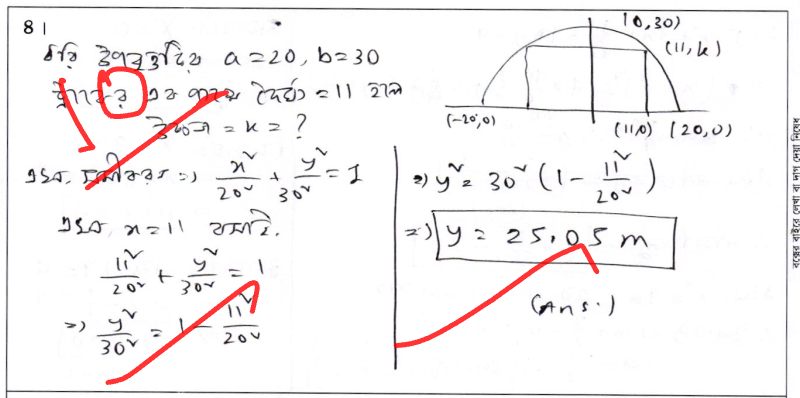 8।
ধরি উপবৃত্তটির a = 20, b = 30
ট্রাকের এক পাশের দৈর্ঘ্য = 11 হলে
উচ্চতা = k = ?
এখন, সমীকরণ => x²/20² + y²/30² = 1
এখন, x = 11 বসাই.
11²/20² + y²/30² = 1
=> y²/30² = 1 - 11²/20²
(0, 30)
(11, k)
(-20, 0)
(11, 0)
(20, 0)
=> y² = 30² (1 - 11²/20²)
=> y = 25.05 m
(Ans.)
বক্সের বাইরে লেখা বা দাগ দেয়া নিষেধ